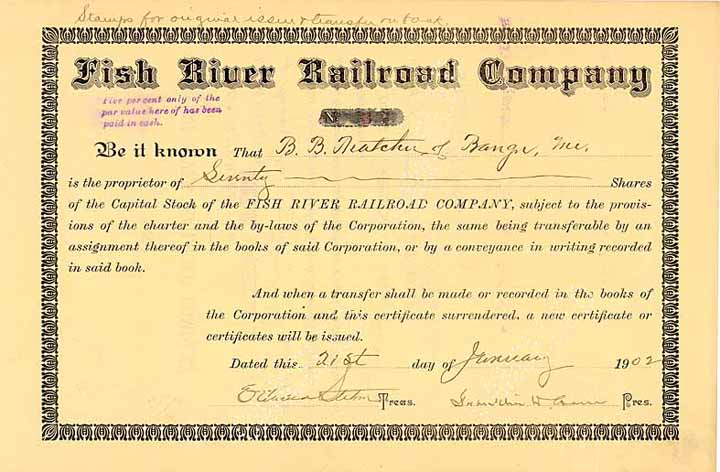 Stamps for original issue & transfer on book.
Fish River Railroad Company
Five per cent only of the
par value here of has been
paid in cash.
No
Be it known That B. B. Thatcher of Bangor, Me.
is the proprietor of Seventy Shares
of the Capital Stock of the FISH RIVER RAILROAD COMPANY, subject to the provis-
ions of the charter and the by-laws of the Corporation, the same being transferable by an
assignment thereof in the books of said Corporation, or by a conveyance in writing recorded
in said book.
And when a transfer shall be made or recorded in the books of
the Corporation and this certificate surrendered, a new certificate or
certificates will be issued.
Dated this 21st day of January 1902
Treas. Franklin W. Cram Pres.